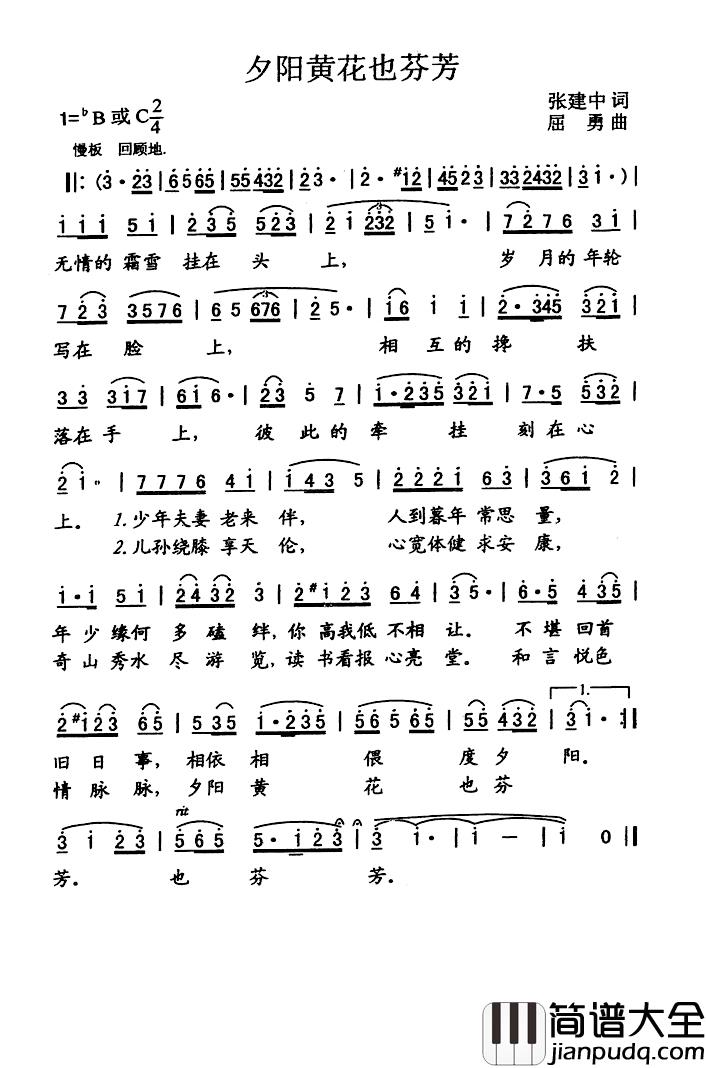 夕阳黄花也芬芳
1=♭B或C 2/4
张建中 词
屈 勇 曲
慢板 回顾地.
‖:(3·23|65 65|55432|23·|2·#12|4523|332432|31·)|
111 51|235 523|21232|51·|7276 31|
无情的 霜雪 挂在 头 上， 岁 月的 年轮
723 3576|65676|25·|16 11|2·345 321|
写在 脸 上， 相 互的 搀 扶
33 317|616·|23 5 7|1·235 321|7·5 532|
落在 手 上， 彼 此的 牵 挂 刻在 心
21··|7776 41|143 5|2221 63|361 2|
上。 1.少年夫妻 老来 伴， 人到暮年 常思 量，
2.儿孙绕膝 享天 伦， 心宽体健 求安 康，
1·1 51|2432 3|2#123 64|35·|6·5 435|
年少缘何 多磕 绊，你 高我低 不相 让。 不堪 回首
奇山秀水 尽游 览，读 书看报 心亮 堂。 和言 悦色
2#123 65|535 1·235|565 565|55 432|31·:‖
1.
旧日 事，相依 相 偎 度夕 阳。
情脉 脉，夕阳 黄 花 也芬
rit
31 23|565 5·123|31·|1—|1 0‖
芳。 也 芬 芳。
简谱大全
jianpudq.com